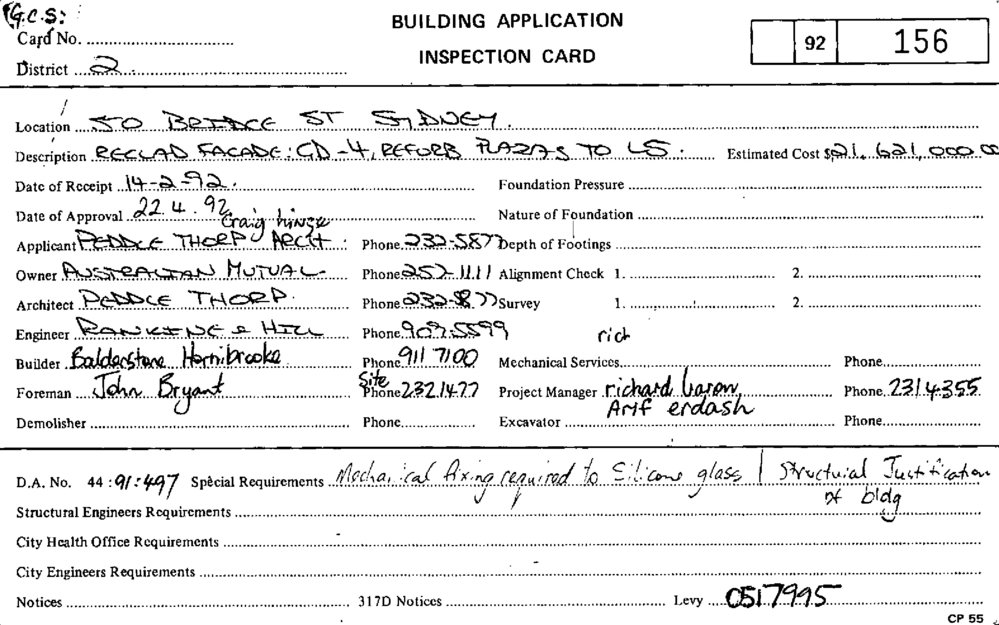 G.C.S:
BUILDING APPLICATION
Card No.
92 156
INSPECTION CARD
District 2
Location 50 BRIDGE ST SYDNEY.
Description RECLAD FACADE: GD-4, REFURB PLAZAS TO LS. Estimated Cost $21,621,000.00
Date of Receipt 14-2-92. Foundation Pressure
Date of Approval 22.4.92 Nature of Foundation
Craig hinge
Applicant PEDDLE THORP ARCIT: Phone 232-5877 Depth of Footings
Owner AUSTRALIAN MUTUAL Phone 257 1111 Alignment Check 1. 2.
Architect PEDDLE THORP. Phone 232-5877 Survey 1. 2.
Engineer RANKINE & HILL Phone 909:5599 rich
Builder Balderstone Hornibrooke Phone 911 7100 Mechanical Services Phone
Foreman John Bryant Site Phone 232 1477 Project Manager richard baron, Phone 231 4355
Arif erdash
Demolisher Phone Excavator Phone
D.A. No. 44:91:497 Special Requirements Mechanical fixing required to Silicone glass | Structuial Justification
of bldg
Structural Engineers Requirements
City Health Office Requirements
City Engineers Requirements
Notices 317D Notices Levy 0517995
CP 55